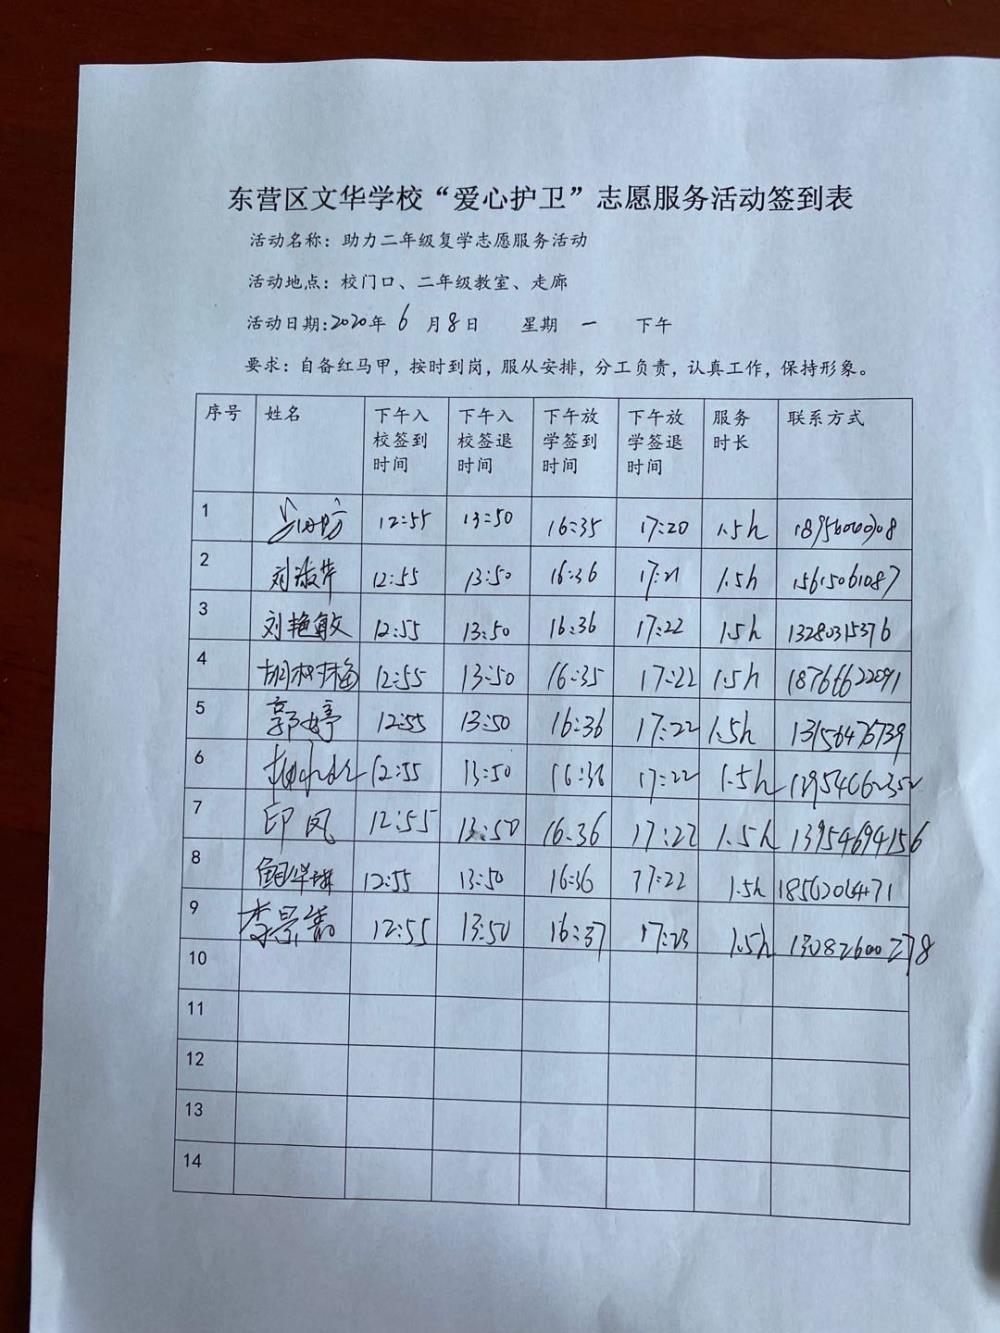 东营区文华学校“爱心护卫”志愿服务活动签到表
活动名称：助力二年级复学志愿服务活动
活动地点：校门口、二年级教室、走廊
活动日期:2020年 6 月8日 星期 一 下午
要求：自备红马甲，按时到岗，服从安排，分工负责，认真工作，保持形象。
序号 姓名 下午入校签到时间 下午入校签退时间 下午放学签到时间 下午放学签退时间 服务时长 联系方式
1 12:55 13:50 16:35 17:20 1.5h
2 刘淑芹 12:55 13:50 16:36 17:21 1.5h 15615061087
3 刘艳敏 12:55 13:50 16:36 17:22 1.5h 13280315376
4 12:55 13:50 16:35 17:22 1.5h 18766622091
5 郭婷 12:55 13:50 16:36 17:22 1.5h
6 12:55 13:50 16:36 17:22 1.5h
7 印凤 12:55 13:50 16:36 17:22 1.5h 13954694156
8 12:55 13:50 16:36 17:22 1.5h
9 12:55 13:50 16:37 17:23 1.5h 13082600278
10
11
12
13
14